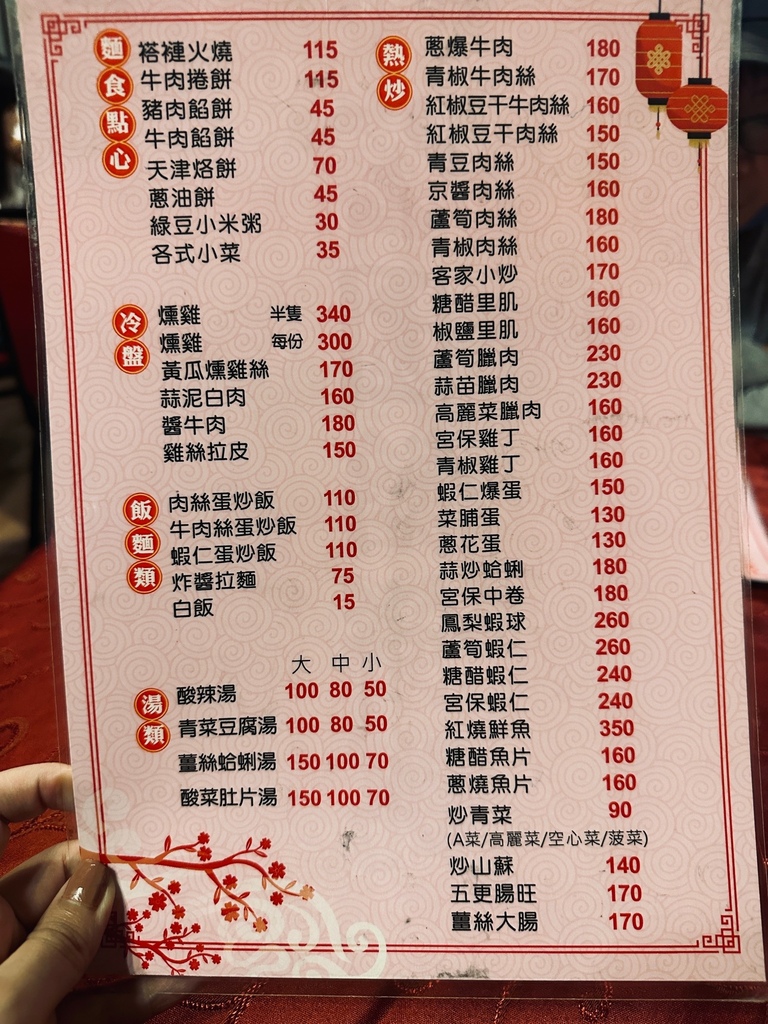 麵食點心
褡褳火燒 115
牛肉捲餅 115
豬肉餡餅 45
牛肉餡餅 45
天津烙餅 70
蔥油餅 45
綠豆小米粥 30
各式小菜 35
冷盤
燻雞 半隻 340
燻雞 每份 300
黃瓜燻雞絲 170
蒜泥白肉 160
醬牛肉 180
雞絲拉皮 150
飯麵類
肉絲蛋炒飯 110
牛肉絲蛋炒飯 110
蝦仁蛋炒飯 110
炸醬拉麵 75
白飯 15
湯類
大 中 小
酸辣湯 100 80 50
青菜豆腐湯 100 80 50
薑絲蛤蜊湯 150 100 70
酸菜肚片湯 150 100 70
熱炒
蔥爆牛肉 180
青椒牛肉絲 170
紅椒豆干牛肉絲 160
紅椒豆干肉絲 150
青豆肉絲 150
京醬肉絲 160
蘆筍肉絲 180
青椒肉絲 160
客家小炒 170
糖醋里肌 160
椒鹽里肌 160
蘆筍臘肉 230
蒜苗臘肉 230
高麗菜臘肉 160
宮保雞丁 160
青椒雞丁 160
蝦仁爆蛋 150
菜脯蛋 130
蔥花蛋 130
蒜炒蛤蜊 180
宮保中卷 180
鳳梨蝦球 260
蘆筍蝦仁 260
糖醋蝦仁 240
宮保蝦仁 240
紅燒鮮魚 350
糖醋魚片 160
蔥燒魚片 160
炒青菜 90
(A菜/高麗菜/空心菜/菠菜)
炒山蘇 140
五更腸旺 170
薑絲大腸 170